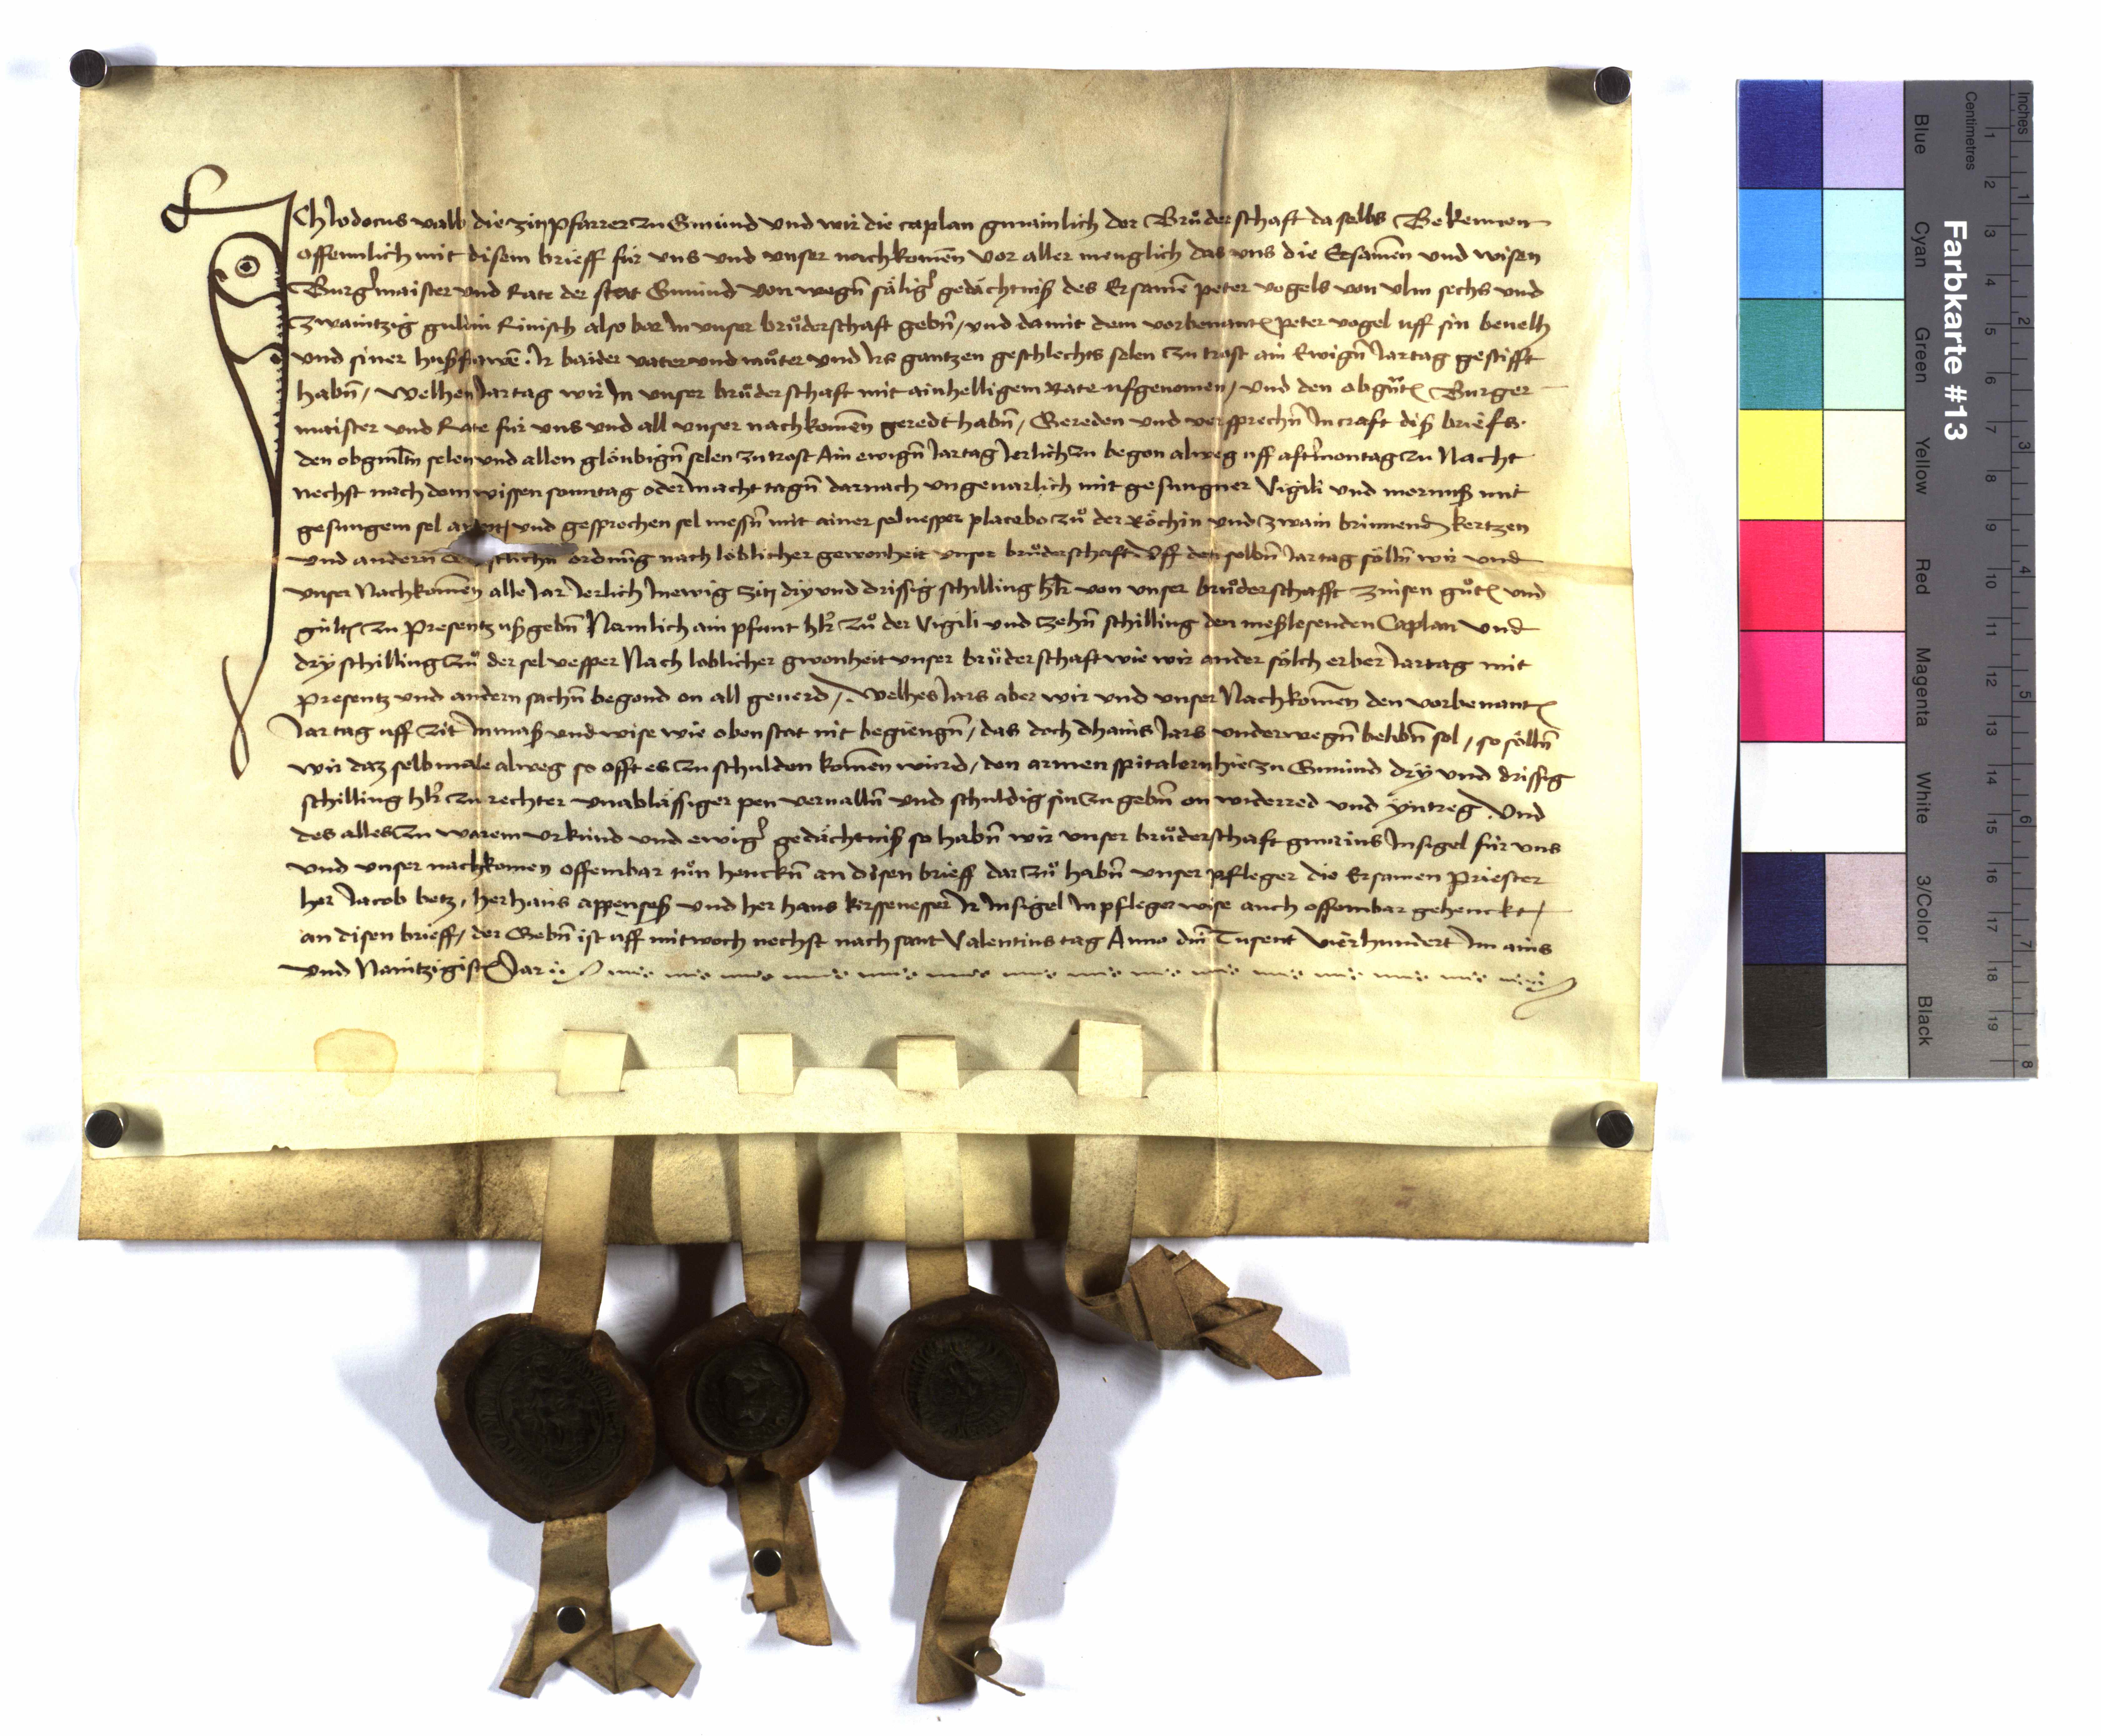 Ich Jodocus vallb die zitt pfarrer zu Gmünd und wir die caplan gmainlich der Brůderschaft daselbs Bekennen
offennlich mit disem brieff für uns und unser nachkomen̄ vor aller menglich das uns die Ersamen̄ und wisen
Burgermaister und Rate der stat Gmünd von wegn̄ säliger gedächtniß des Ersamē peter vogels von vlm sechs und
zwaintzig guldin Rinisch also bar In unser brůderschaft gebn̄, und damit dem vorbenantē peter vogel uff sin beuelh
und siner hußfrawē. Ir baider vater und můter und Irs gantzen geschlechts selen zu trost ain Ewign̄ Jartag gestifft
habn̄, welhen Jartag wir In unser brůderschaft mit ainhelligem Rate ufgenomen, und den obgn̄tē Burger
maister und Rate für uns und all unser nachkomen̄ geredt habn̄, Gereden und versprechn̄ In craft diß briefs.
den obgmltn̄ selen und allen glöubign̄ selen zu trost Ain ewign̄ Jartag Jerlich zu begon alweg uff aftermontag zu Nacht
nechst nach dem wissen sonntag oder In acht tagn̄ darnach ungeuarlich mit gesungner Vigili und mornuß mit
gesungem sel und gesprochen sel messn̄ mit ainer selvesper placebo zů der Röchin und zwain brinnendē kertzen
und andern̄ ordnūg nach loblicher gewonheit unser brůderschaft Uff den selbn̄ Jartag söllin̄ wir und
unser Nachkomen̄ alle Jar Jerlich In ewig zitt dry und drissig schilling hlr von unser brůderschafft zinsen gůtē und
gültē zu Presentz ußgebn̄ Namlich ain pfunt hlr zů der Vigili und zehn̄ schilling den meßlesenden Caplan und
dry schilling zů der sel vesper Nach loblicher gwonheit unser brůderschaft wie wir ander sölch erber Jartag mit
Presentz und andern sachn̄ begond on all geuerd. Welhes Jars aber wir und unser Nachkomen̄ den vorbenantē
Jartag uff zit In maß und wise wie oben stat nit begiengn̄, das doch dhains Jars underwegn̄ belibn̄ sol, so sölln̄
wir daz selb male alweg so offt es zu schulden komen̄ würd, den armen spitalern hie zu Gmünd dry und drissig
schilling hlr zu rechter unablässiger pen verualln̄ und schuldig sin zu gebn̄ on widerred und yntreg. Und
des alles zu warem urkünd und ewiger gedächtniß so habn̄ wir unser brůderschaft gmains Insigel für uns
und unser nachkomen offembar tůn henckn̄ an disen brieff dar zů habn̄ unser pfleger die Ersamen Priester
her Jacob betz, her hans und her hans kirssenesser Ir Insigel In pfleger wise auch offembar gehenckt
an disen brieff, der Gebn̄ ist uff mitwoch nechst nach sant Valentins tag Anno dn̄i Tusent vierhundert Im ains
und Naintzigistē Jar
Farbkarte #13
Blue Cyan Green Yellow Red Magenta White 3/Color Black
Centimetres 1 2 3 4 5 6 7 8 9 10 11 12 13 14 15 16 17 18 19
Inches 1 2 3 4 5 6 7 8